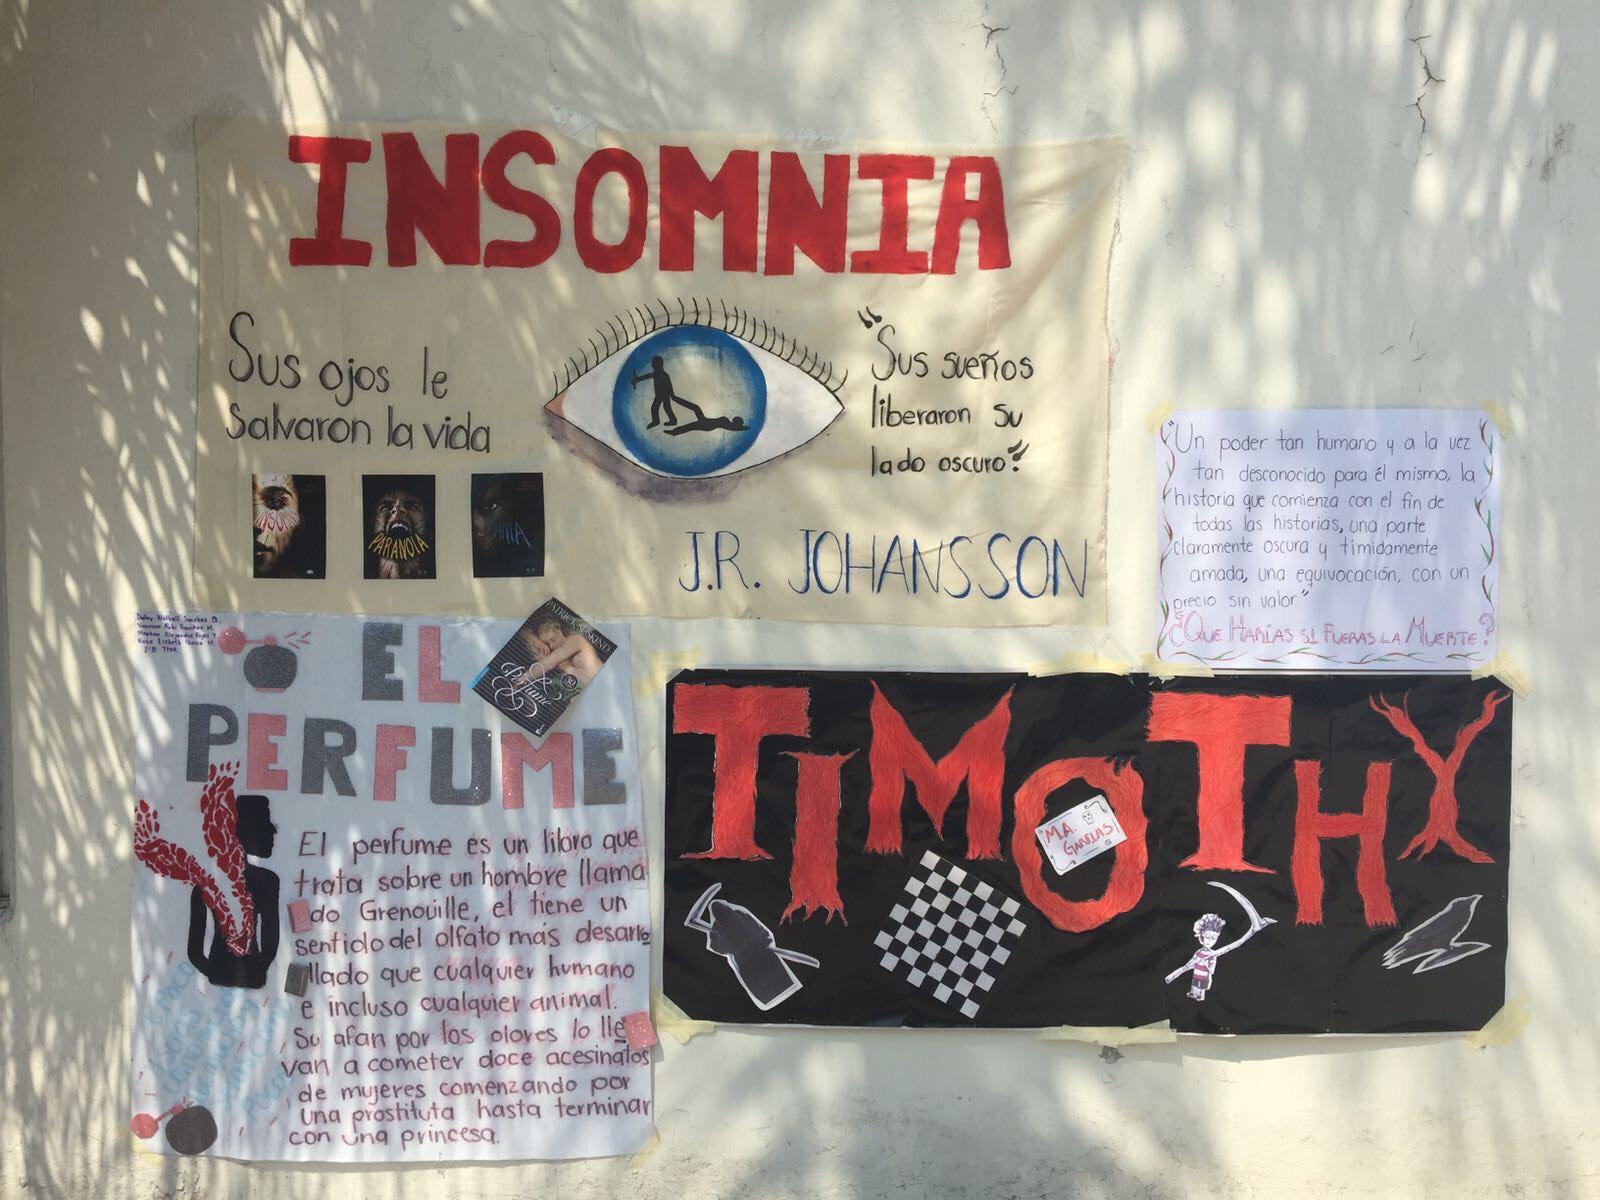 INSOMNIA
Sus ojos le
salvaron la vida
"Sus sueños
liberaron su
lado oscuro"
PARANOIA
J.R. JOHANSSON
"Un poder tan humano y a la vez
tan desconocido para él mismo, la
historia que comienza con el fin de
todas las historias, una parte
claramente oscura y timidamente
amada, una equivocación, con un
precio sin valor"
¿QUE HARÍAS SI FUERAS LA MUERTE?
2°B TPM.
EL
PERFUME
PATRICK SÜSKIND
El perfume es un libro que
trata sobre un hombre llama
do Grenouille, el tiene un
sentido del olfato más desarro
llado que cualquier humano
e incluso cualquier animal.
Su afan por los olores lo lle
van a cometer doce acesinatos
de mujeres comenzando por
una prostituta hasta terminar
con una princesa.
TIMOTHY
M.A.
GARELAS